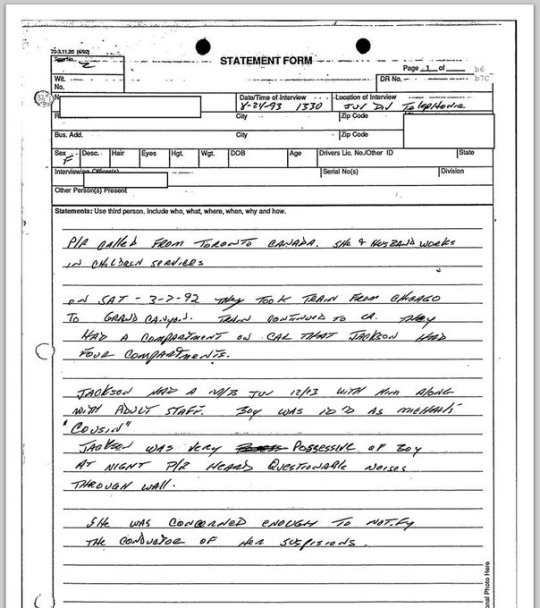 70-3.11.20 (4/92)
2
STATEMENT FORM
Page 1 of
b6
b7C
Wit.
No.
DR No.
Date/Time of Interview
Location of Interview
8-24-93 1330
JUV DIV Telephone
City
Zip Code
Bus. Add.
City
Zip Code
Sex
Desc.
Hair
Eyes
Hgt.
Wgt.
DOB
Age
Drivers Lic. No./Other ID
State
F
Interviewing Officer(s)
Serial No(s)
Division
Other Person(s) Present
Statements: Use third person. Include who, what, where, when, why and how.
P/R CALLED FROM TORONTO CANADA. SHE & HUSBAND WORKS
IN CHILDREN SERVICES
ON SAT - 3-7-92 THEY TOOK TRAIN FROM CHICAGO
TO GRAND CANYON. TRAIN CONTINUED TO CA. THEY
HAD A COMPARTMENT ON CAR THAT JACKSON HAD
FOUR COMPARTMENTS.
JACKSON HAD A M/B JUV 12/13 WITH HIM ALONG
WITH ADULT STAFF. BOY WAS ID'D AS MICHAEL'S
"COUSIN"
JACKSON WAS VERY POSSESSIVE OF BOY
AT NIGHT P/R HEARD QUESTIONABLE NOISES
THROUGH WALL.
SHE WAS CONCERNED ENOUGH TO NOTIFY
THE CONDUCTOR OF HER SUSPISIONS.
Photo Here